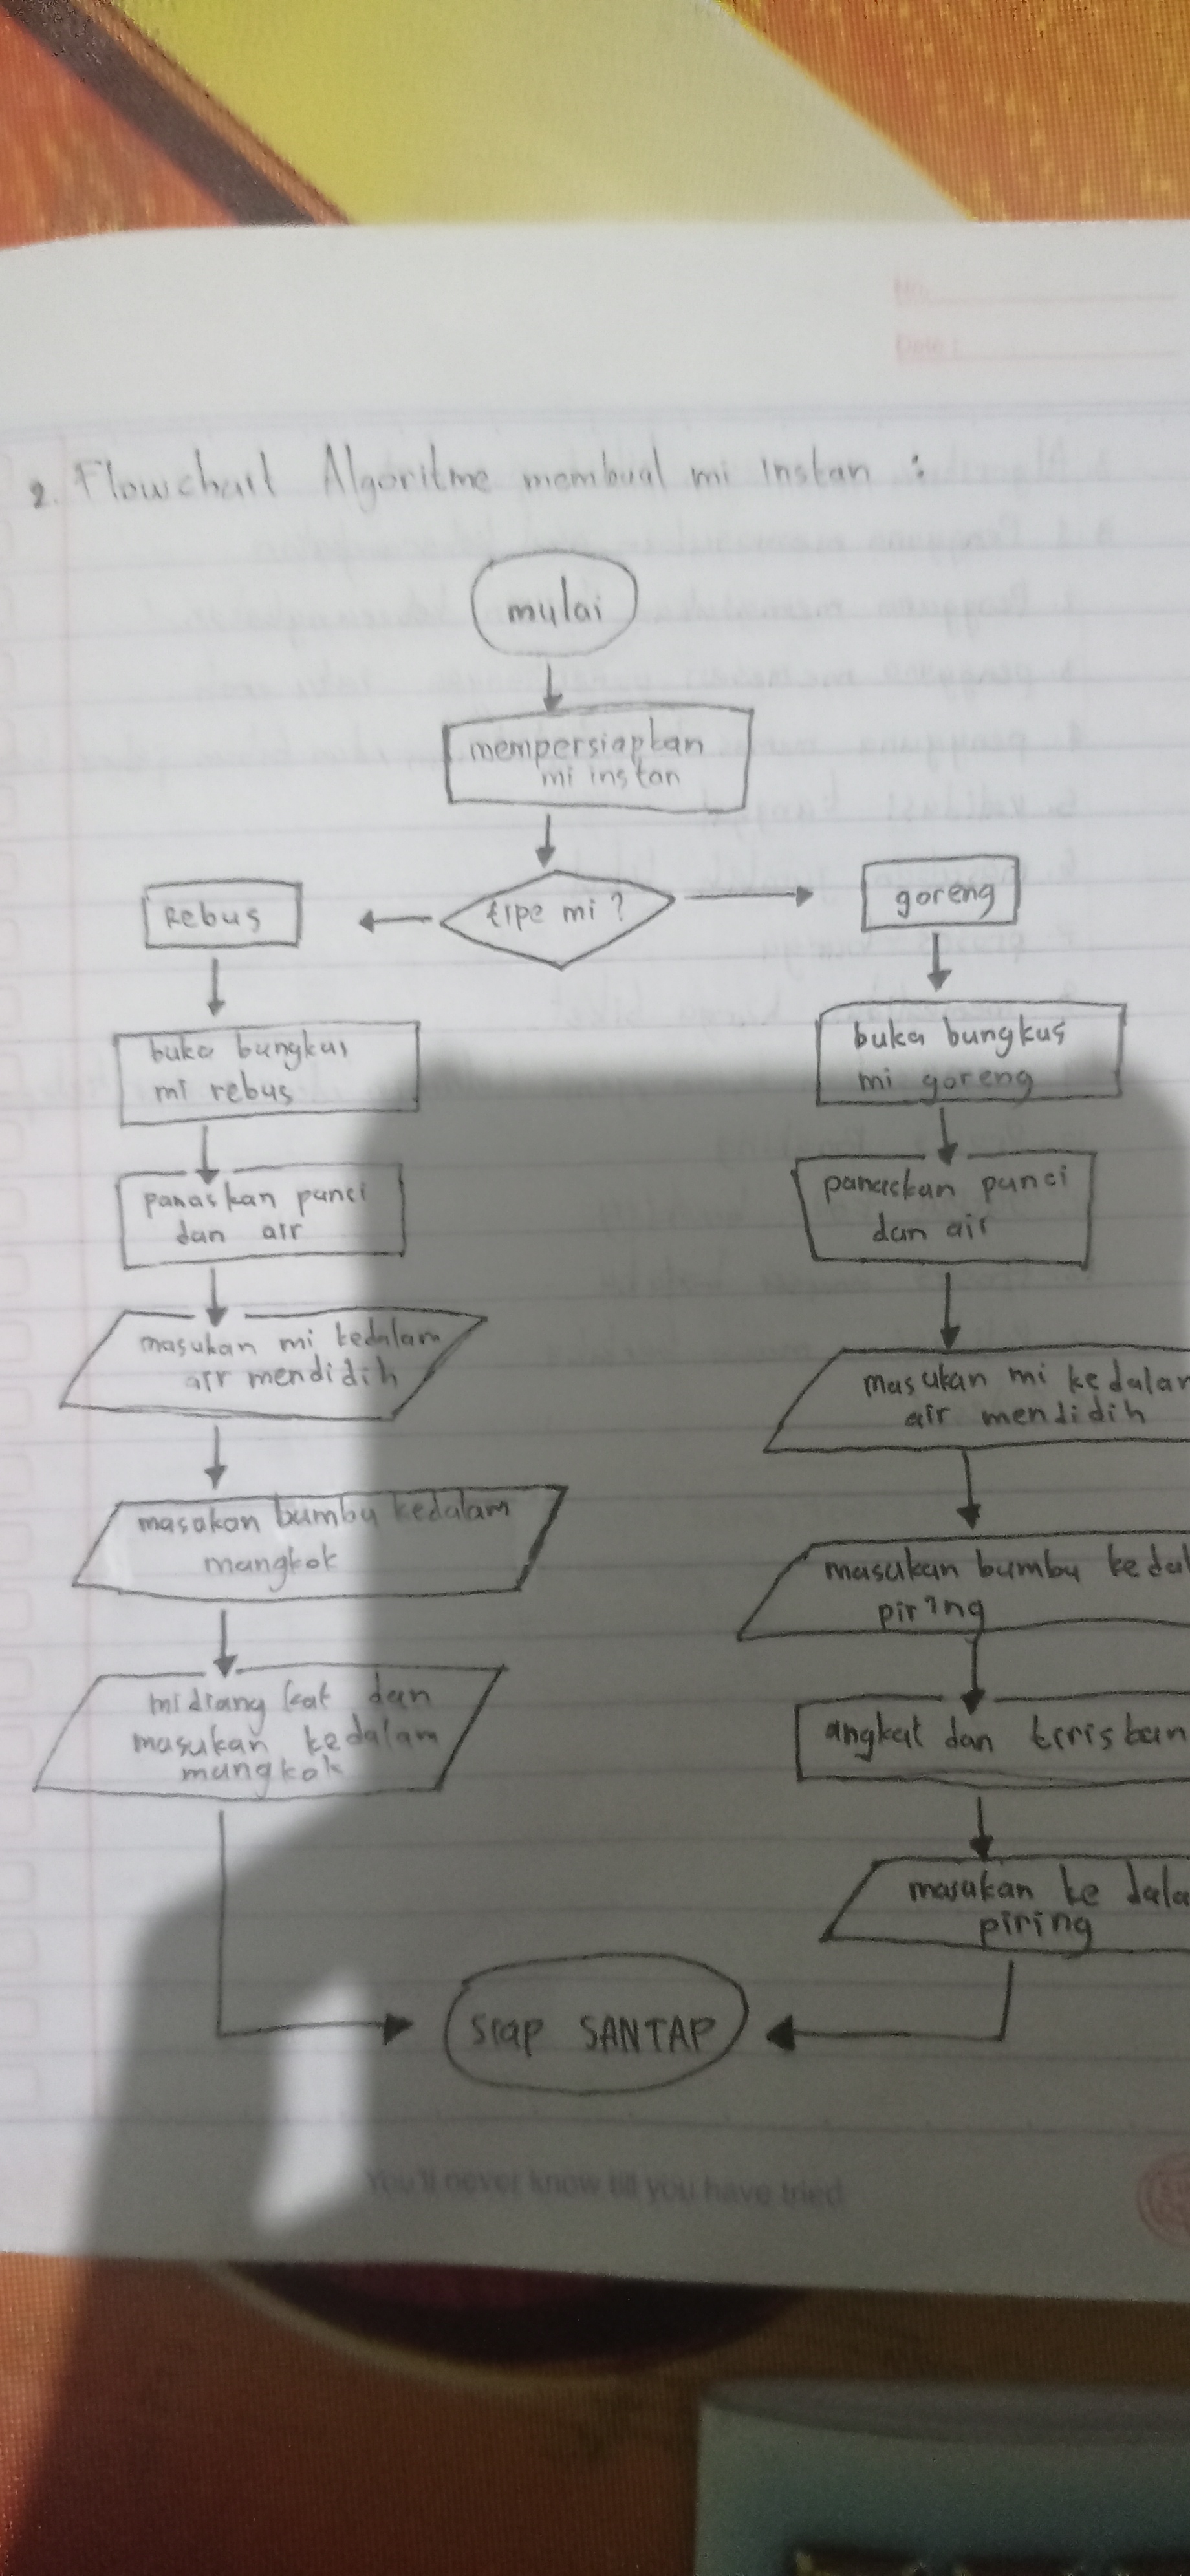 No.
Date :
2. Flowchart Algoritme membuat mi instan :
mulai
mempersiapkan
mi instan
tipe mi ?
Rebus
buka bungkus
mi rebus
panaskan panci
dan air
masukan mi kedalam
air mendidih
masukan bumbu kedalam
mangkok
mi diangkat dan
masukan kedalam
mangkok
goreng
buka bungkus
mi goreng
panaskan panci
dan air
masukan mi kedalam
air mendidih
masukan bumbu kedal
piring
angkat dan tiriskan
masukan ke dala
piring
siap SANTAP
You'll never know till you have tried